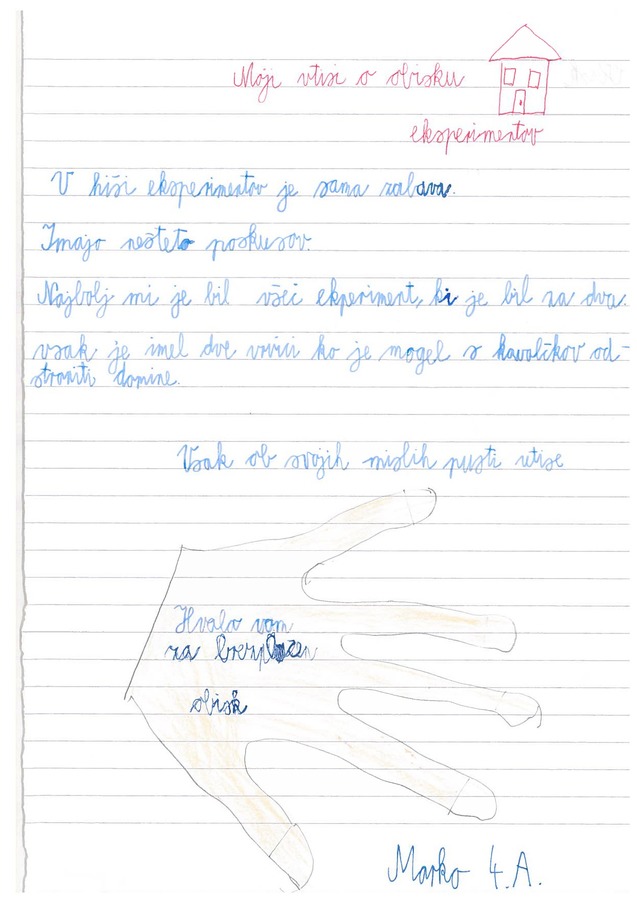 Moji vtisi o obisku
eksperimentov
V hiši eksperimentov je sama zabava.
Imajo nešteto poskusov.
Najbolj mi je bil všeč ekperiment, ki je bil za dva.
vsak je imel dve vrvici ko je mogel s kavoličkov od-
straniti domine.
Vsak ob svojih mislih pusti utise
Hvala vam
za brezplačen
obisk
Marko 4.A.